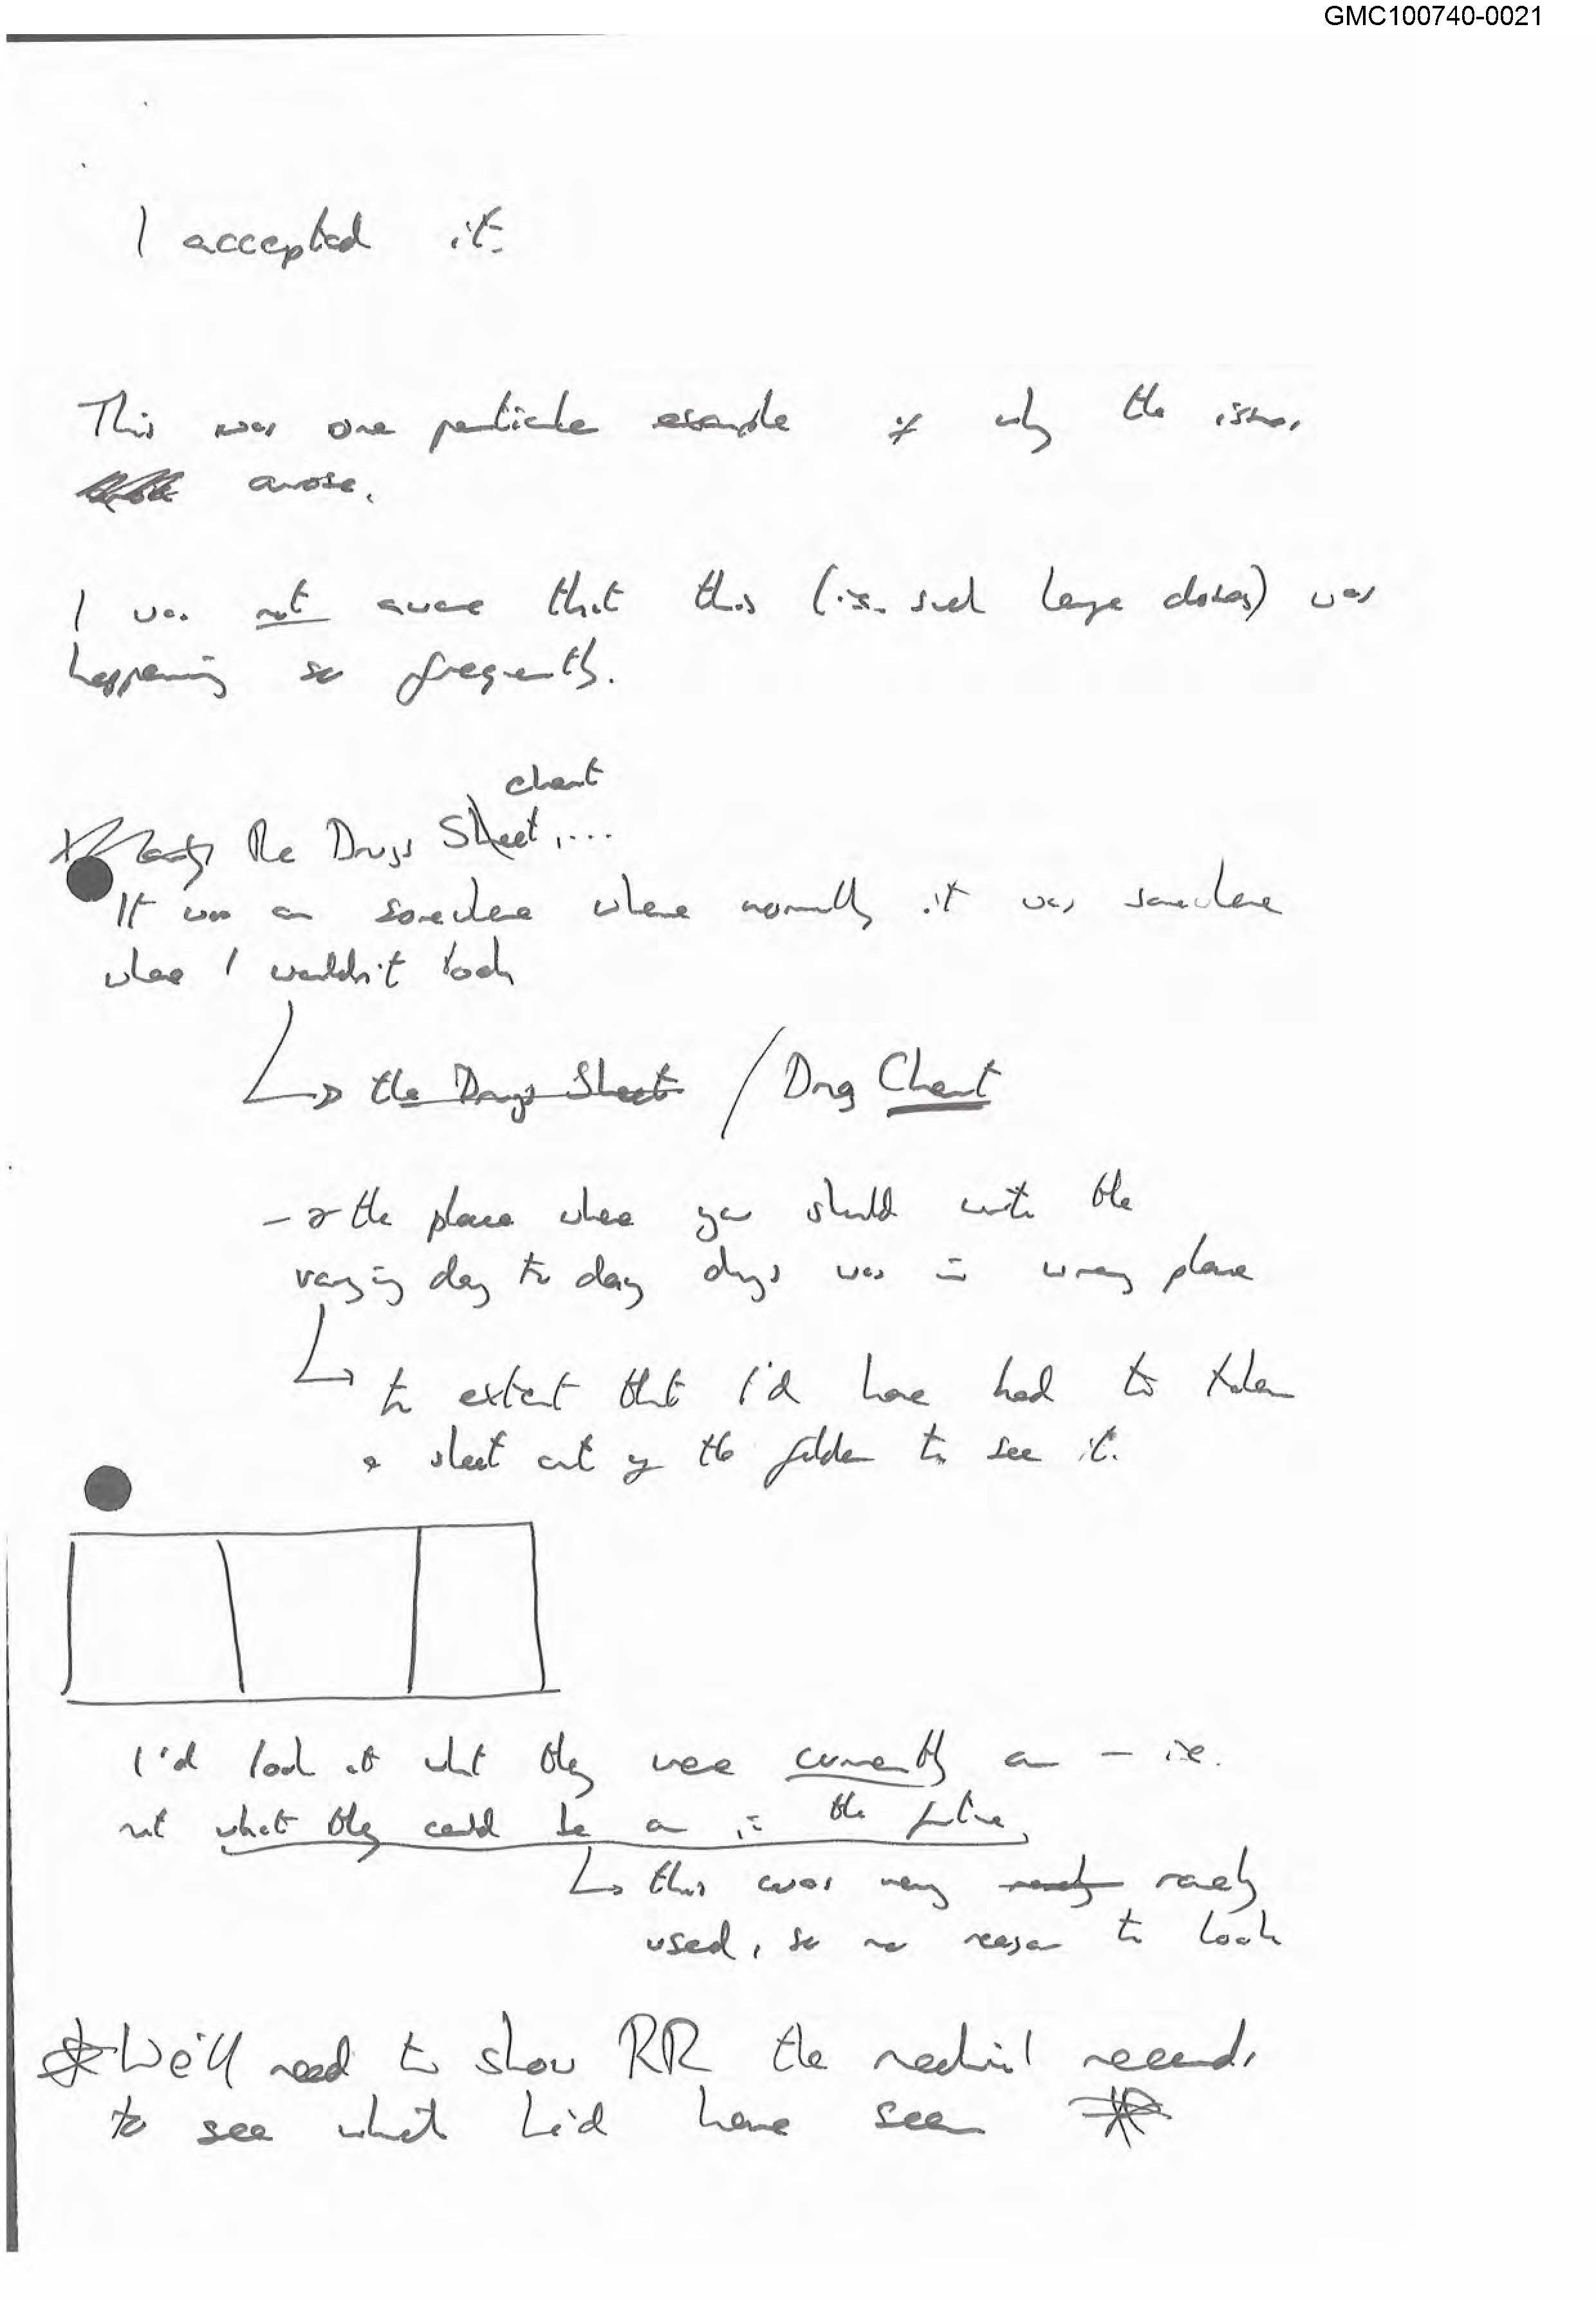 GMC100740-0021
I accepted it.
This was one particular example of why the issues
arose.
I was not aware that this (i.e. such large doses) was
happening so frequently.
chart
Re Drugs Sheet, ....
It was on somewhere where normally it was somewhere
where I wouldn't look
the Drugs Sheet / Drug Chart
→ the place where you should write the
varying day to day drugs was in wrong place
to extent that I'd have had to taken
a sheet out of the folder to see it.
I'd look at what they were currently on - ie.
not what they could be on in the future,
this was very rarely
used, so no reason to look
We'll need to show RR the medical records
to see what he'd have seen